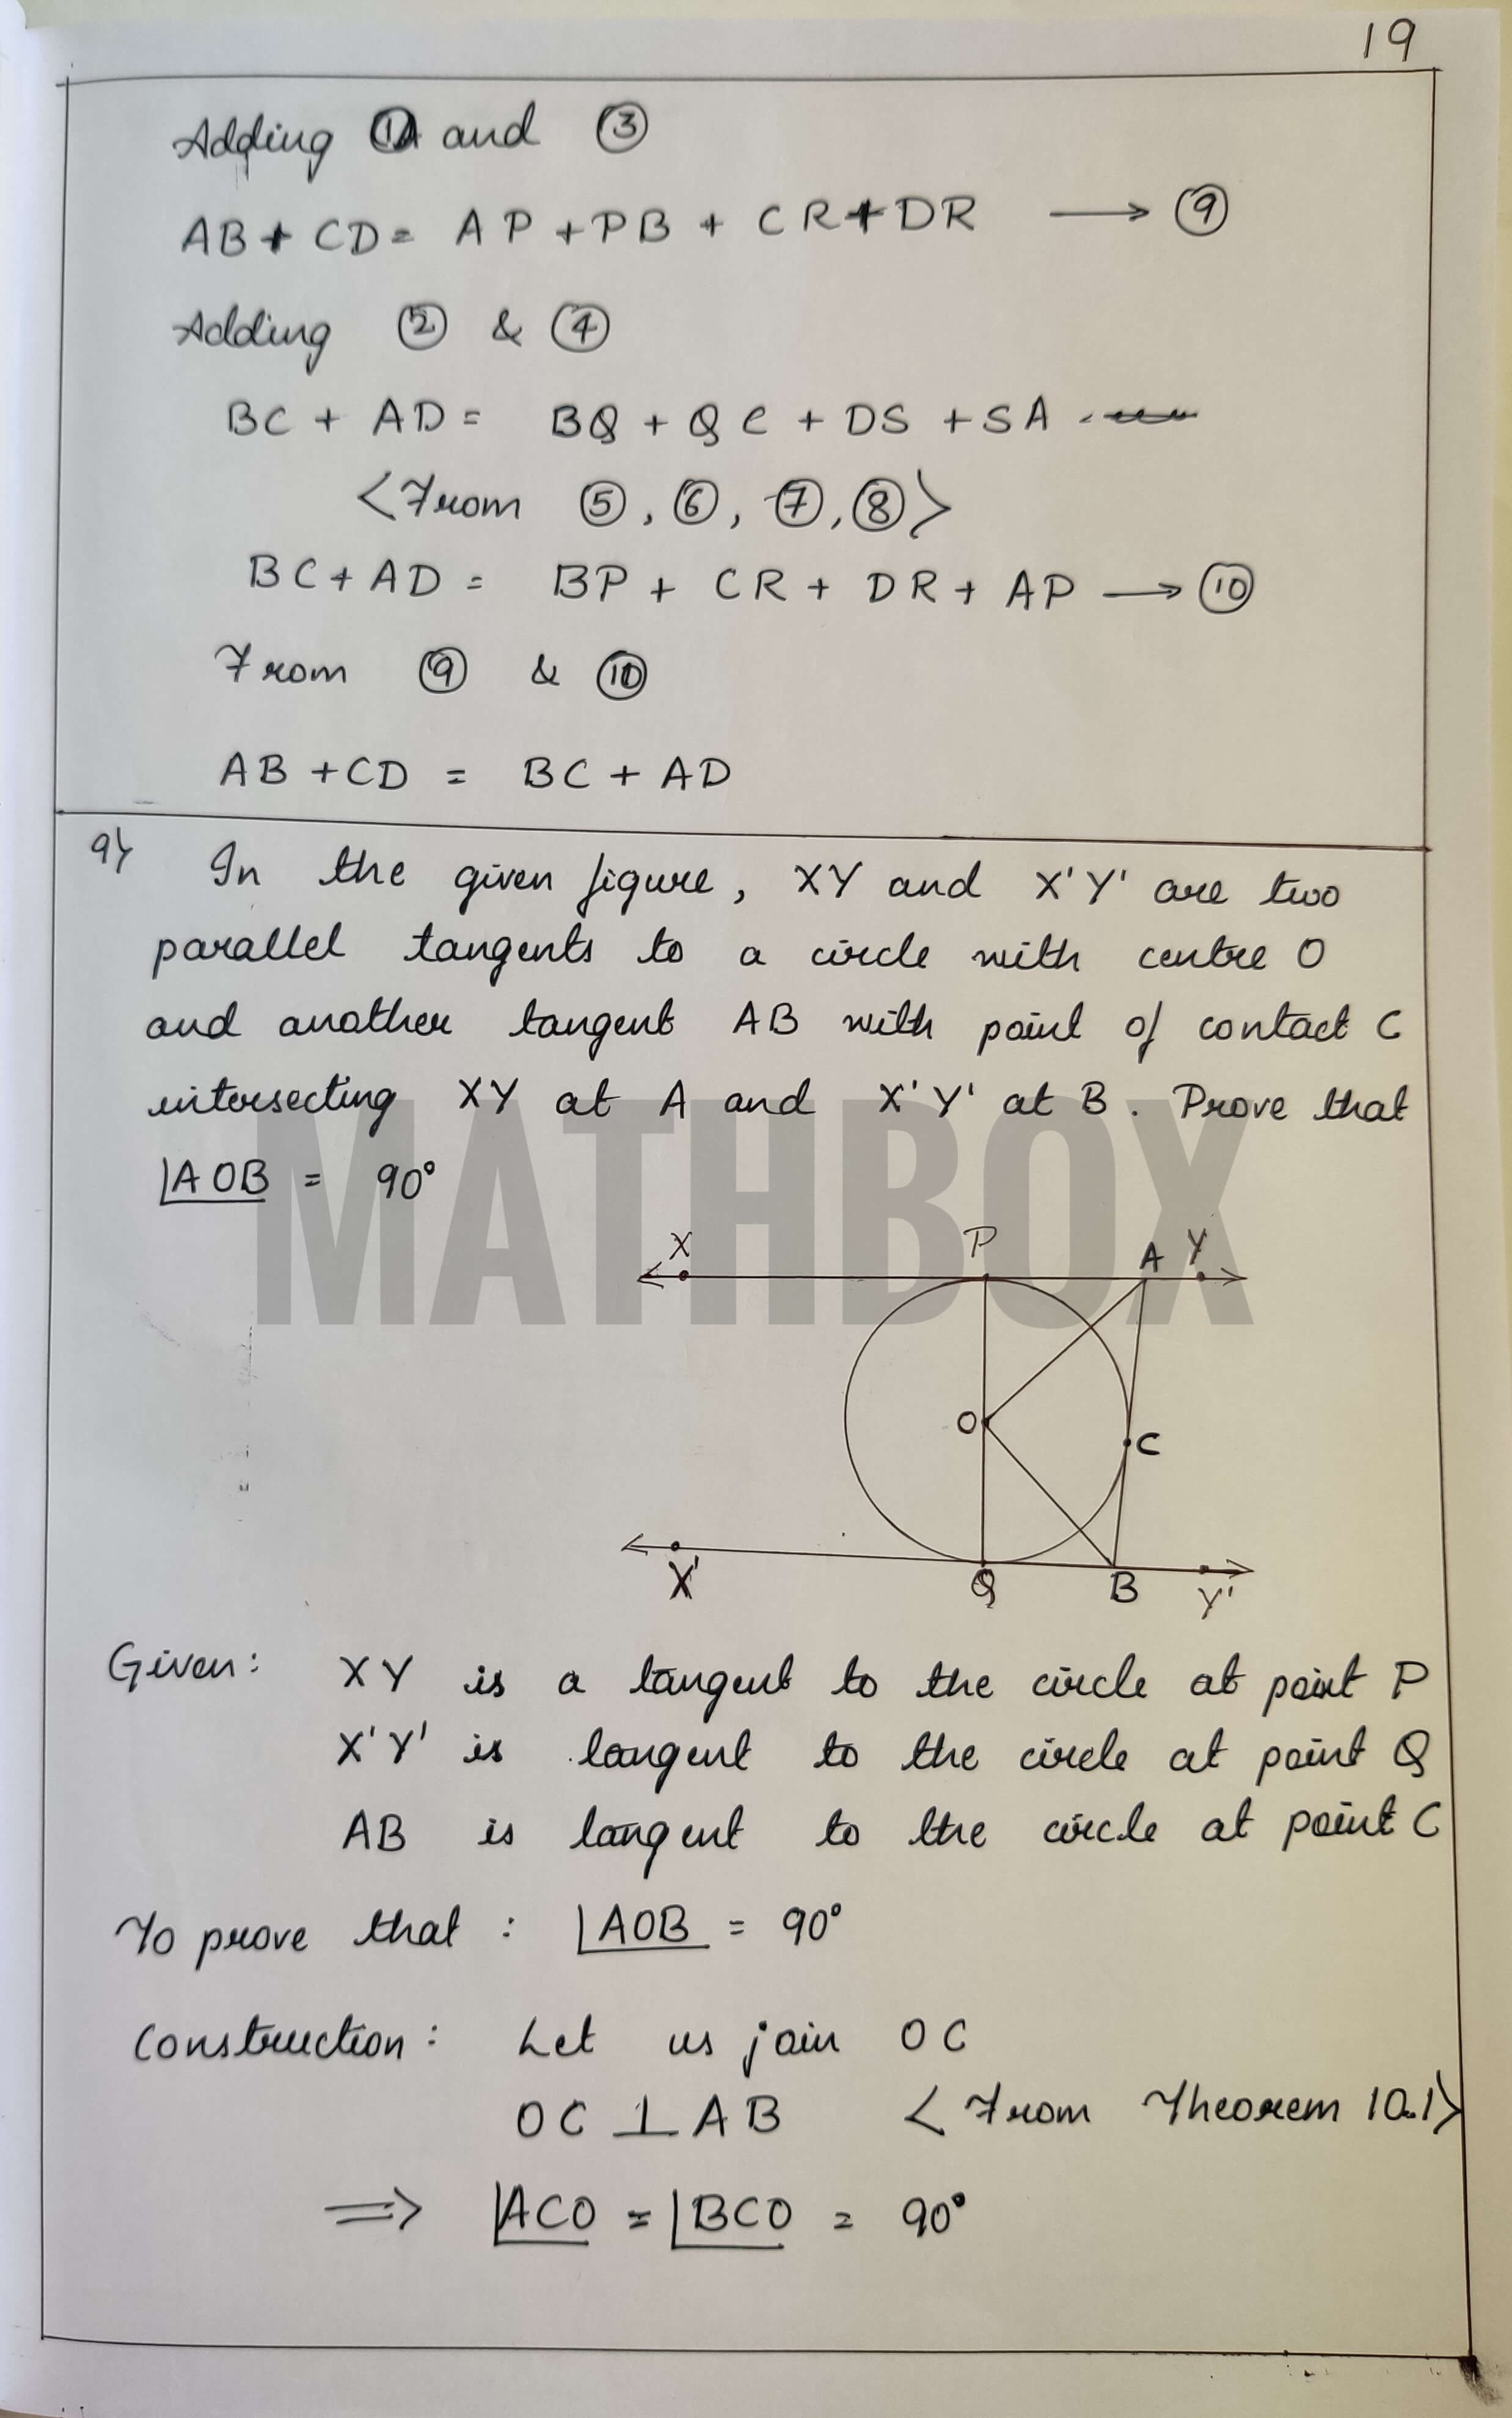 19
Adding ① and ③
AB + CD = AP + PB + CR + DR ⟶ ⑨
Adding ② & ④
BC + AD = BQ + QC + DS + SA
<From ⑤, ⑥, ⑦, ⑧>
BC + AD = BP + CR + DR + AP ⟶ ⑩
From ⑨ & ⑩
AB + CD = BC + AD
9) In the given figure, XY and X'Y' are two
parallel tangents to a circle with centre O
and another tangent AB with point of contact C
intersecting XY at A and X'Y' at B. Prove that
∠AOB = 90°
MATHBOX
X P A Y
O C
X' Q B Y'
Given: XY is a tangent to the circle at point P
X'Y' is tangent to the circle at point Q
AB is tangent to the circle at point C
To prove that : ∠AOB = 90°
Construction: Let us join OC
OC ⊥ AB <From Theorem 10.1>
⟹ ∠ACO = ∠BCO = 90°